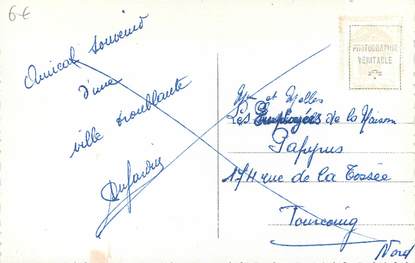 6 €
Amical souvenir
d'une
ville troublante
Dujardin
PHOTOGRAPHIE
VÉRITABLE
Mme et Melles
Les Employées de la Maison
Papyrus
174 rue de la Fossée
Tourcoing
Nord